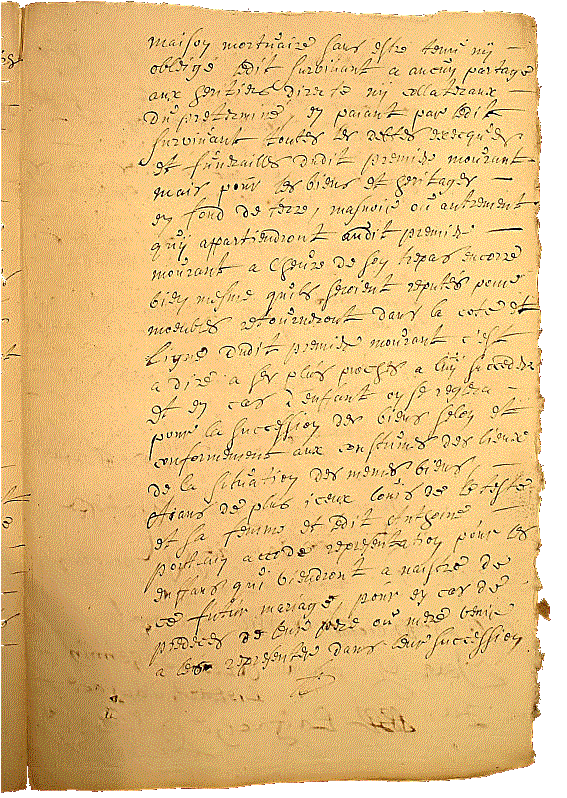 maison mortuaire sans estre tenu nÿ
obleigé ledit survivant a aucun partage
aux heritiers directe nÿ collateraux
du pretermine, en paiant par ledit
survivant toutes les debtes execques
et funerailles dudit premier mourant
mais pour les biens et heritages
en fond de terre, manoir ou autrement
quÿ appartiendront audit premier
mourant a l'heure de son trepas encorre
bien mesme qu'ils seroient reputés pour
moeubles retourneront dans la cote et
Ligne dudit premier mourant c'est
a dire a ses plus proches a luÿ succeder
et en cas d'enfant on se reglera
pour la succession des biens selon et
conformement aux coustumes des lieux
de la situation des memes biens
de plus iceux Louis de
et sa femme et ledit Anthoine
accorde representation pour les
enffans quÿ viendront a naistre de
ce futur mariage, pour en cas de
predeces de leur pere ou mere venir
a les representer dans leur succession